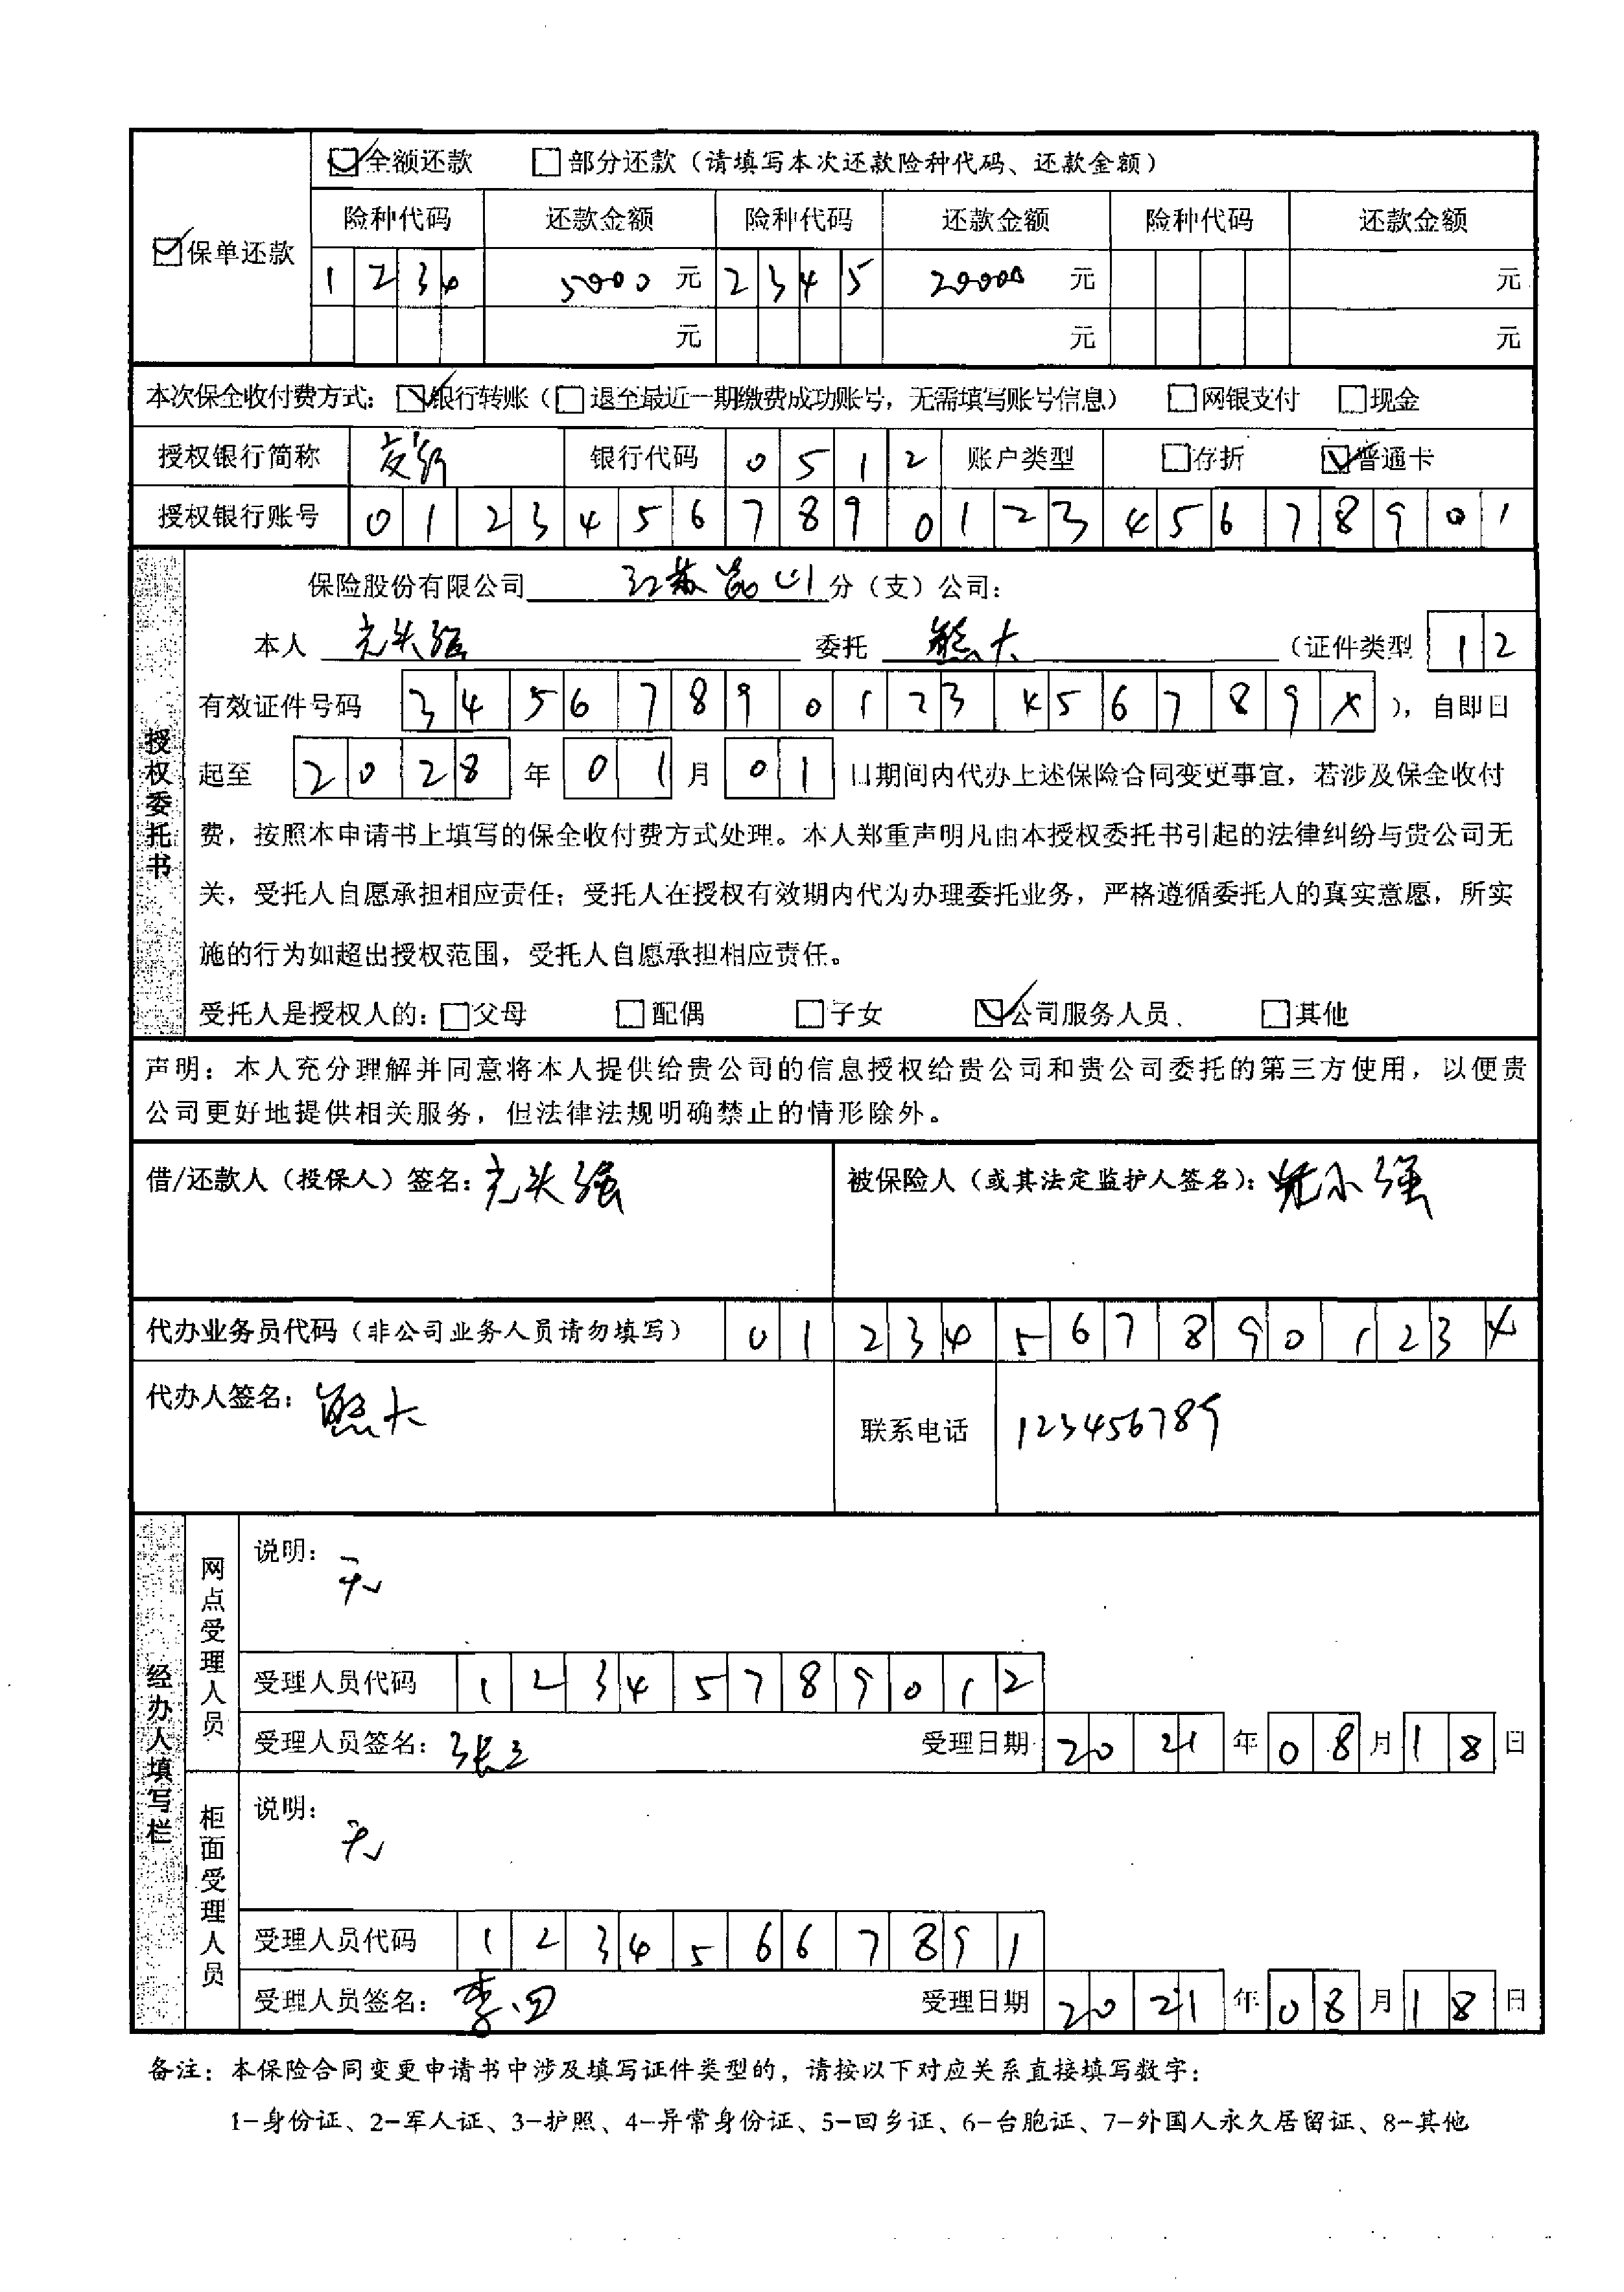 ☑全额还款 ☐部分还款（请填写本次还款险种代码、还款金额）
☑保单还款
险种代码 还款金额 险种代码 还款金额 险种代码 还款金额
1234 5000 元 2345 20000 元 元
元 元 元
本次保全收付费方式：☑银行转账（☐退至最近一期缴费成功账号，无需填写账号信息） ☐网银支付 ☐现金
授权银行简称 银行代码 0512 账户类型 ☐存折 ☑普通卡
授权银行账号 0123456789012345678901
授权委托书
保险股份有限公司 江苏昆山 分（支）公司：
本人 光头强 委托 熊大 （证件类型 12
有效证件号码 34567890123456789X ），自即日
起至 2028 年 01 月 01 日期间内代办上述保险合同变更事宜，若涉及保全收付
费，按照本申请书上填写的保全收付费方式处理。本人郑重声明凡由本授权委托书引起的法律纠纷与贵公司无
关，受托人自愿承担相应责任；受托人在授权有效期内代为办理委托业务，严格遵循委托人的真实意愿，所实
施的行为如超出授权范围，受托人自愿承担相应责任。
受托人是授权人的：☐父母 ☐配偶 ☐子女 ☑公司服务人员、 ☐其他
声明：本人充分理解并同意将本人提供给贵公司的信息授权给贵公司和贵公司委托的第三方使用，以便贵
公司更好地提供相关服务，但法律法规明确禁止的情形除外。
借/还款人（投保人）签名：光头强 被保险人（或其法定监护人签名）：光小强
代办业务员代码（非公司业务人员请勿填写） 01234567890123X
代办人签名：熊大 联系电话 123456789
经办人填写栏
网点受理人员
说明：
无
受理人员代码 12345789012
受理人员签名：张三 受理日期 2021 年 08 月 18 日
柜面受理人员
说明：
无
受理人员代码 12345667891
受理人员签名：李四 受理日期 2021 年 08 月 18 日
备注：本保险合同变更申请书中涉及填写证件类型的，请按以下对应关系直接填写数字：
1-身份证、2-军人证、3-护照、4-异常身份证、5-回乡证、6-台胞证、7-外国人永久居留证、8-其他